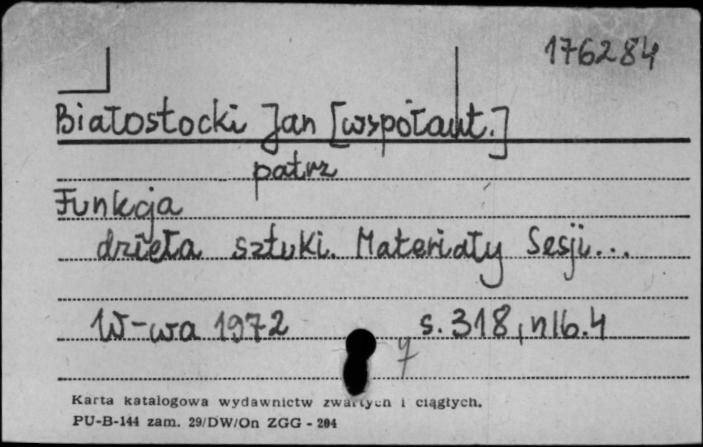 176284
Białostocki Jan [współaut.]
patrz
Funkcja
dzieła sztuki. Materiały Sesji...
W-wa 1972 s. 318, nlb. 4
7
Karta katalogowa wydawnictw zwartych i ciągłych.
PU-B-144 zam. 29/DW/On ZGG - 204